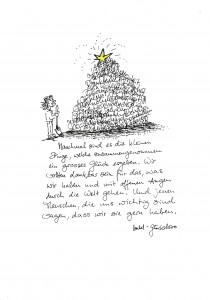 Manchmal sind es die kleinen
Dinge, welche zusammengenommen
ein grosses Glück ergeben. Wir
sollten dankbar sein für das, was
wir haben und mit offenen Augen
durch die Welt gehen. Und jenen
Menschen, die uns wichtig sind
sagen, dass wir sie gern haben.